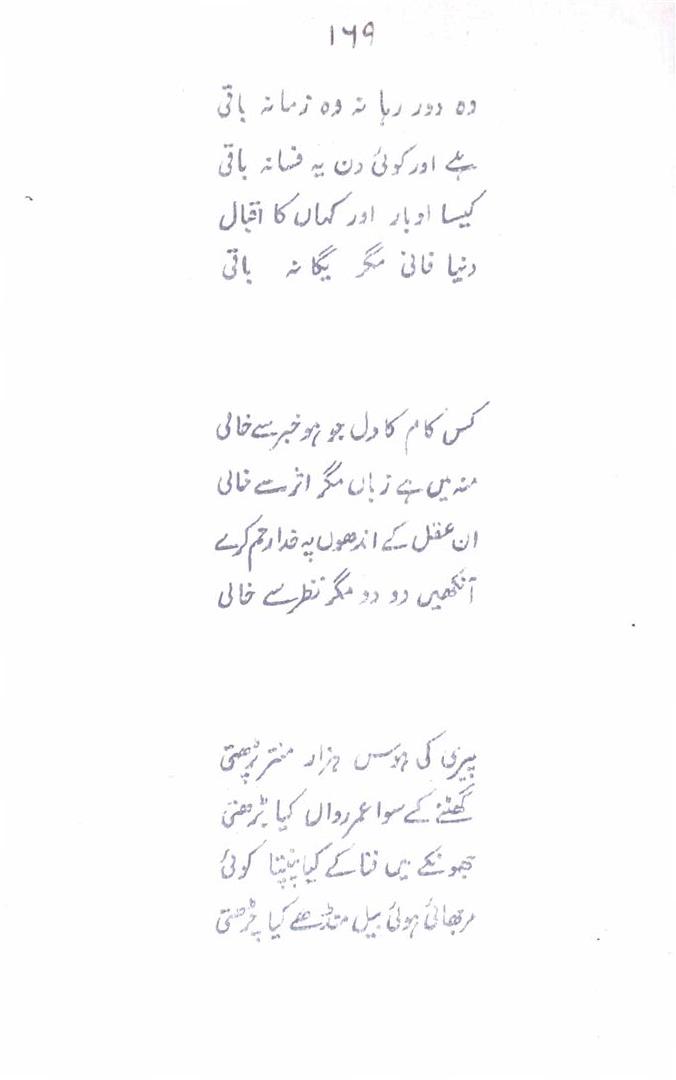 ۱۶۹
وہ دور رہا نہ وہ زمانہ باقی
ہے اور کوئی دن یہ فسانہ باقی
کیسا ادبار اور کہاں کا اقبال
دنیا فانی مگر یگانہ باقی
کس کام کا دل جو ہو خبر سے خالی
منہ میں ہے زباں مگر اثر سے خالی
ان عقل کے اندھوں پہ خدا رحم کرے
آنکھیں دو دو مگر نظر سے خالی
پیری کی ہوس ہزار منتر پڑھتی
گھٹنے کے سوا عمر رواں کیا بڑھتی
جھونکے میں فنا کے کیا پنپتا کوئی
مرجھائی ہوئی بیل منڈھے کیا چڑھتی